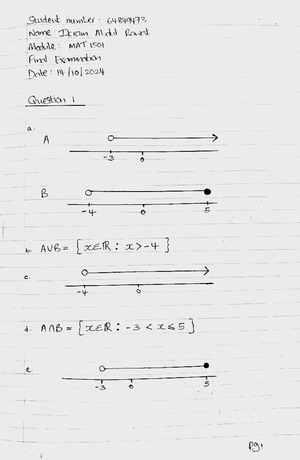 Student number: 64849473
Name Ikram Abdul Rawat
Module: MAT1501
Final Examination
Date: 14/10/2024
Question 1
a.
A
-3 0
B
-4 0 5
b. A∪B = {x∈ℝ : x>-4}
c.
-4 0
d. A∩B = {x∈ℝ : -3 < x ≤ 5}
e.
-3 0 5
pg1